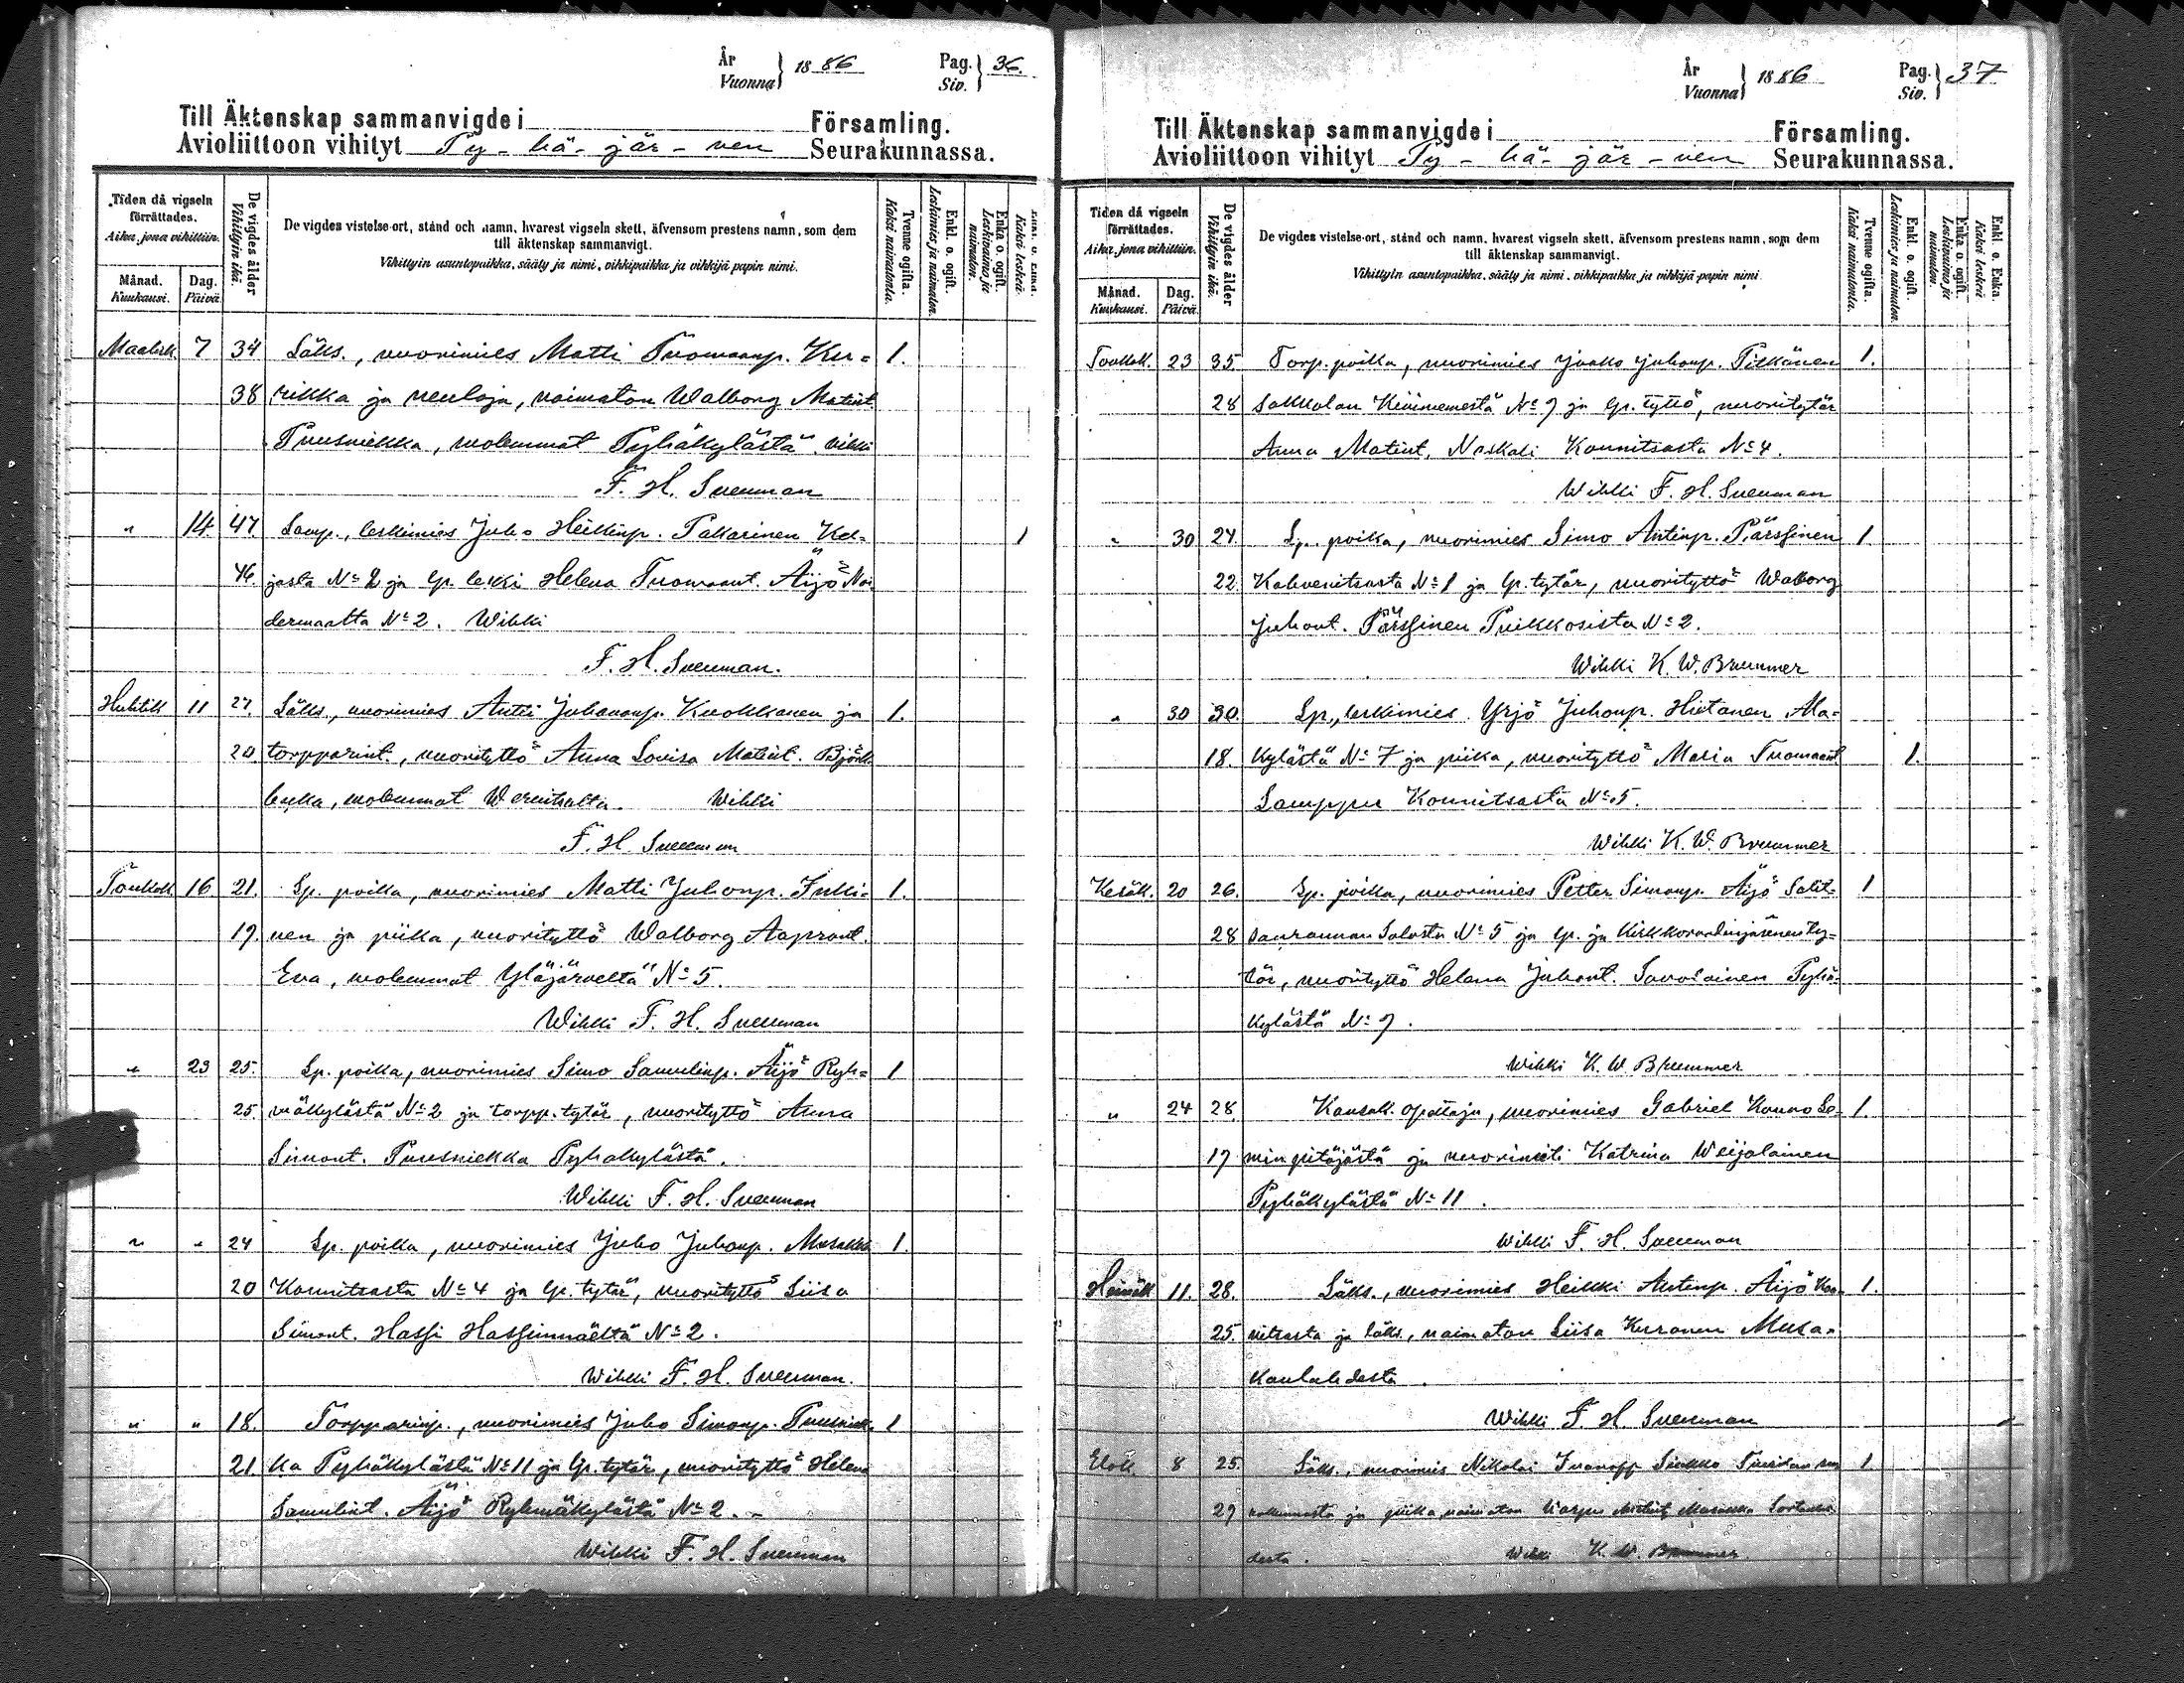 År
Vuonna } 1886 Pag.
Siv. } 36.
Till Äktenskap sammanvigde i Församling.
Avioliittoon vihityt Py-hä-jär-ven Seurakunnassa.
Tiden då vigseln förrättades.
Aika, jona vihittiin.
Månad.
Kuukausi.
Dag.
Päivä.
De vigdes ålder
Vihittyin ikä.
De vigdes vistelse-ort, stånd och namn, hvarest vigseln skett, äfvensom prestens namn, som dem
till äktenskap sammanvigt.
Vihittyin asuntopaikka, sääty ja nimi, vihkipaikka ja vihkijä papin nimi.
Tvenne ogifta.
Kaksi naimatonta.
Enkl. o. ogift.
Leskimies ja naimaton.
Enka o. ogift.
Leskivaimo ja naimaton.
Kaksi leskeä.
Maalisk 7 34 Läks., nuorimies Matti Tuomaanp. Ku= 1.
38 rikka ja neuloja, naimaton Walborg Matint.
Puusniekka, molemmat Pyhäkylästä. vihki
F. H. Sveuman
" 14 47. Lamp., leskimies Juho Heikinp. Pakarinen Kel= 1
46. jasta № 2 ja lp. leski Helena Tuomaant. Äijö Noi
dermaalta № 2. Wihki
F. H. Sveuman.
Huhtik 11 27. Läks., nuorimies Antti Juhananp. Kuokkanen ja 1.
20. torpparint., nuorityttö Anna Lovisa Matint. Björk
backa, molemmat Wernitsalta. Wihki
F. H. Sveuman
Toukok 16 21. Lp. poika, nuorimies Matti Juhonp. Inki= 1.
19. nen ja piika, nuorityttö Walborg Aapront.
Eva, molemmat Yläjärveltä № 5.
Wihki F. H. Sveuman
" 23 25. Lp. poika, nuorimies Simo Samulinp. Äijö Ryh= 1
25. mäkylästä № 2 ja torpp. tytär, nuorityttö Anna
Simont. Puusniekka Pyhäkylästä.
Wihki F. H. Sveuman
" " 24 Lp. poika, nuorimies Juho Juhonp. 1.
20 Konnitsasta № 4 ja lp. tytär, nuorityttö Liisa
Simont. Hassi Hassinmäeltä № 2.
Wihki F. H. Sveuman.
" " 18. Torpparinp., nuorimies Juho Simonp. Puusniek= 1
21 ka Pyhäkylästä № 11 ja lp. tytär, nuorityttö Helena
Samulint. Äijö Ryhmäkylästä № 2.
Wihki F. H. Sveuman
År
Vuonna } 1886 Pag.
Siv. } 37
Till Äktenskap sammanvigde i Församling.
Avioliittoon vihityt Py-hä-jär-ven Seurakunnassa.
Tiden då vigseln förrättades.
Aika, jona vihittiin.
Månad.
Kuukausi.
Dag.
Päivä.
De vigdes ålder
Vihittyin ikä.
De vigdes vistelse-ort, stånd och namn, hvarest vigseln skett, äfvensom prestens namn, som dem
till äktenskap sammanvigt.
Vihittyin asuntopaikka, sääty ja nimi, vihkipaikka ja vihkijä-papin nimi.
Tvenne ogifta.
Kaksi naimatonta.
Enkl. o. ogift.
Leskimies ja naimaton.
Enka o. ogift.
Leskivaimo ja naimaton.
Enkl. o. Enka.
Kaksi leskeä.
Toukok. 23 35. Torp. poika, nuorimies Jaako Juhonp. Pitkänen 1.
28 Sakkolan Kiviniemestä № 7 ja lp. tyttö, nuoritytär
Anna Matint. Naskali Konnitsasta № 4.
Wihki F. H. Sveuman
" 30 24. Lp. poika, nuorimies Simo Antinp. Pärssinen 1.
22. Kahvenitsasta № 1 ja lp. tytär, nuorityttö Walborg
Juhont. Pärssinen Puikkosista № 2.
Wihki K. W. Brummer
" 30 30. Lp., leskimies Yrjö Juhonp. Hietanen Ala=
18. kylästä № 7 ja piika, nuorityttö Maria Tuomaant 1.
Lamppu Konnitsasta № 5.
Wihki K. W. Brummer
Kesäk. 20 26. Lp. poika, nuorimies Petter Simonp. Äijö Salit= 1
28 sanrannan Salosta № 5 ja lp. ja kirkkoraadinjäsenen ty=
tär, nuorityttö Helena Juhont. Savolainen Pyhä=
kylästä № 7.
Wihki K. W. Brummer
" 24 28. Kansak. opettaja, nuorimies Gabriel Konno Le= 1.
17 min pitäjästä ja nuorineiti Katrina Weijalainen
Pyhäkylästä № 11.
Wihki F. H. Sveuman
Heinäk 11. 28. Läks., nuorimies Heikki Antinp. Äijö Kon= 1.
25. nitsasta ja läks., naimaton Liisa Kuronen Musa=
kanlahdesta.
Wihki F. H. Sveuman
Elok. 8 25. Läks., nuorimies Nikolai Ivanoff 1.
27 ja piika, naimaton
desta. Wihki K. W. Brummer